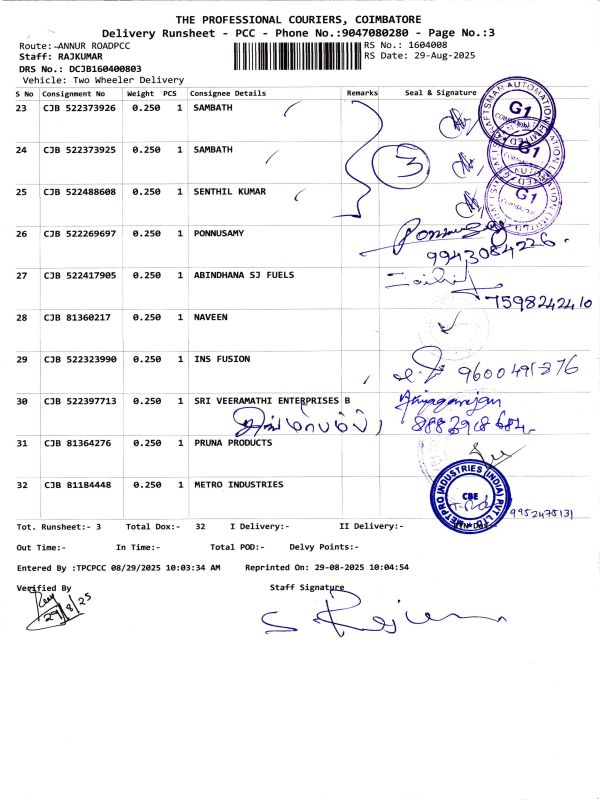 THE PROFESSIONAL COURIERS, COIMBATORE
Delivery Runsheet - PCC - Phone No.:9047080280 - Page No.:3
Route:-ANNUR ROADPCC
RS No.: 1604008
Staff: RAJKUMAR
RS Date: 29-Aug-2025
DRS No.: DCJB160400803
Vehicle: Two Wheeler Delivery
S No Consignment No Weight PCS Consignee Details Remarks Seal & Signature
23 CJB 522373926 0.250 1 SAMBATH
24 CJB 522373925 0.250 1 SAMBATH
3
25 CJB 522488608 0.250 1 SENTHIL KUMAR
G1
G1
G1
26 CJB 522269697 0.250 1 PONNUSAMY
9943084226.
27 CJB 522417905 0.250 1 ABINDHANA SJ FUELS
7598242410
28 CJB 81360217 0.250 1 NAVEEN
29 CJB 522323990 0.250 1 INS FUSION
9600491876
30 CJB 522397713 0.250 1 SRI VEERAMATHI ENTERPRISES B
31 CJB 81364276 0.250 1 PRUNA PRODUCTS
32 CJB 81184448 0.250 1 METRO INDUSTRIES
CBE
9952475131
Tot. Runsheet:- 3 Total Dox:- 32 I Delivery:- II Delivery:-
Out Time:- In Time:- Total POD:- Delvy Points:-
Entered By :TPCPCC 08/29/2025 10:03:34 AM Reprinted On: 29-08-2025 10:04:54
Verified By
Staff Signature
29/8/25